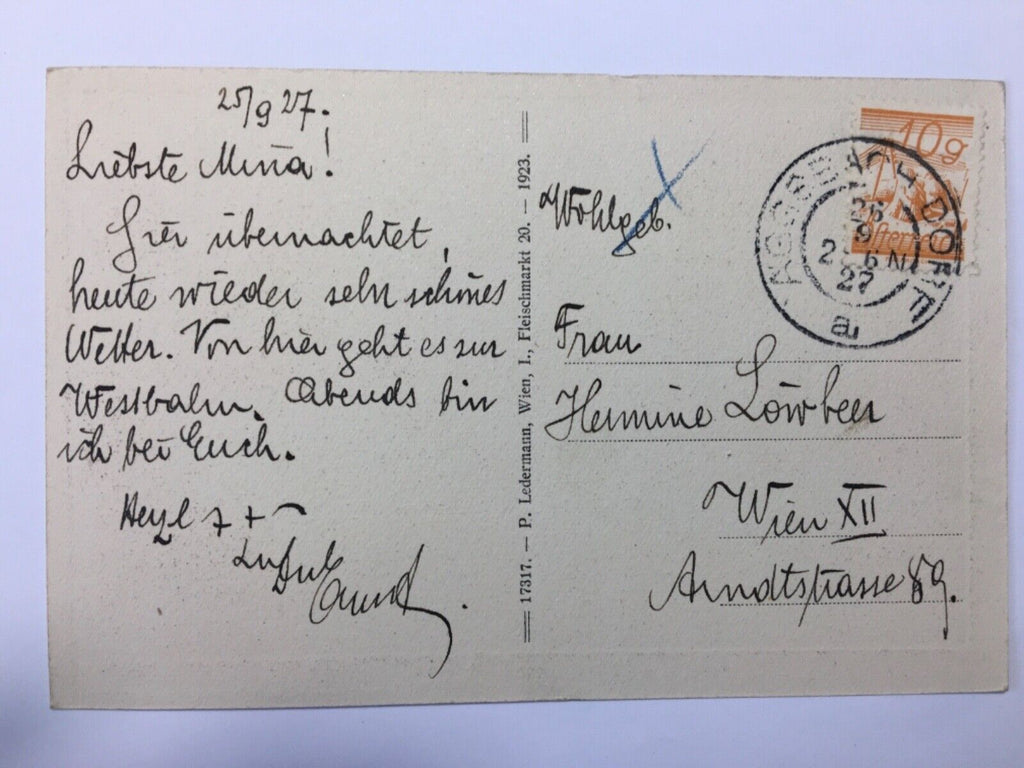 25/9 27.
Liebste Mina!
Hier übernachtet,
heute wieder sehr schönes
Wetter. Von hier geht es zur
Westbahn. Abends bin
ich bei Euch.
Herzl
17317. — P. Ledermann, Wien, I., Fleischmarkt 20. — 1923.
10g
Österreich
26
9
27
a
Wohlgeb.
Frau
Hermine Löwbeer
Wien XII
Arndtstrasse 89.